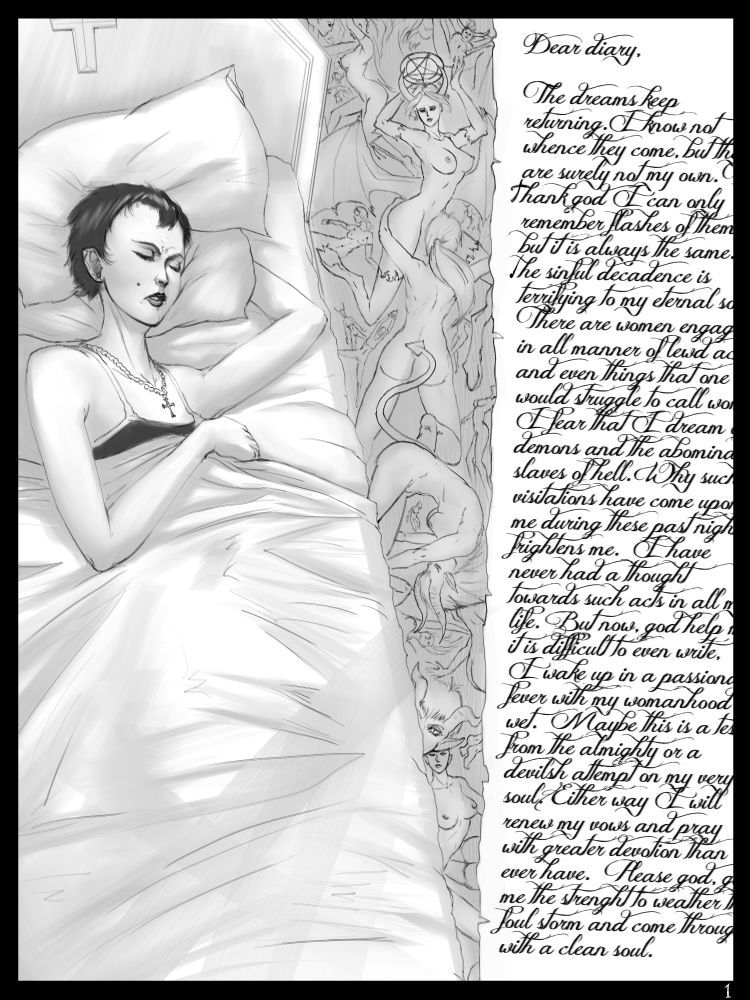 Dear diary,
The dreams keep
returning. I know not
whence they come, but
are surely not my own.
Thank god I can only
remember flashes of them
but it is always the same.
The sinful decadence is
terrifying to my eternal
There are women
in all manner of lewd
and even things that one
would struggle to call
I fear that I dream
demons and the
slaves of hell. Why such
visitations have come upon
me during these past
frightens me. I have
never had a thought
towards such acts in all
life. But now, god help
it is difficult to even write,
I wake up in a
fever with my womanhood
wet. Maybe this is a
from the almighty or a
devilsh attempt on my very
soul. Either way I will
renew my vows and pray
with greater devotion than
ever have. Please god,
me the strenght to weather
foul storm and come
with a clean soul.
1